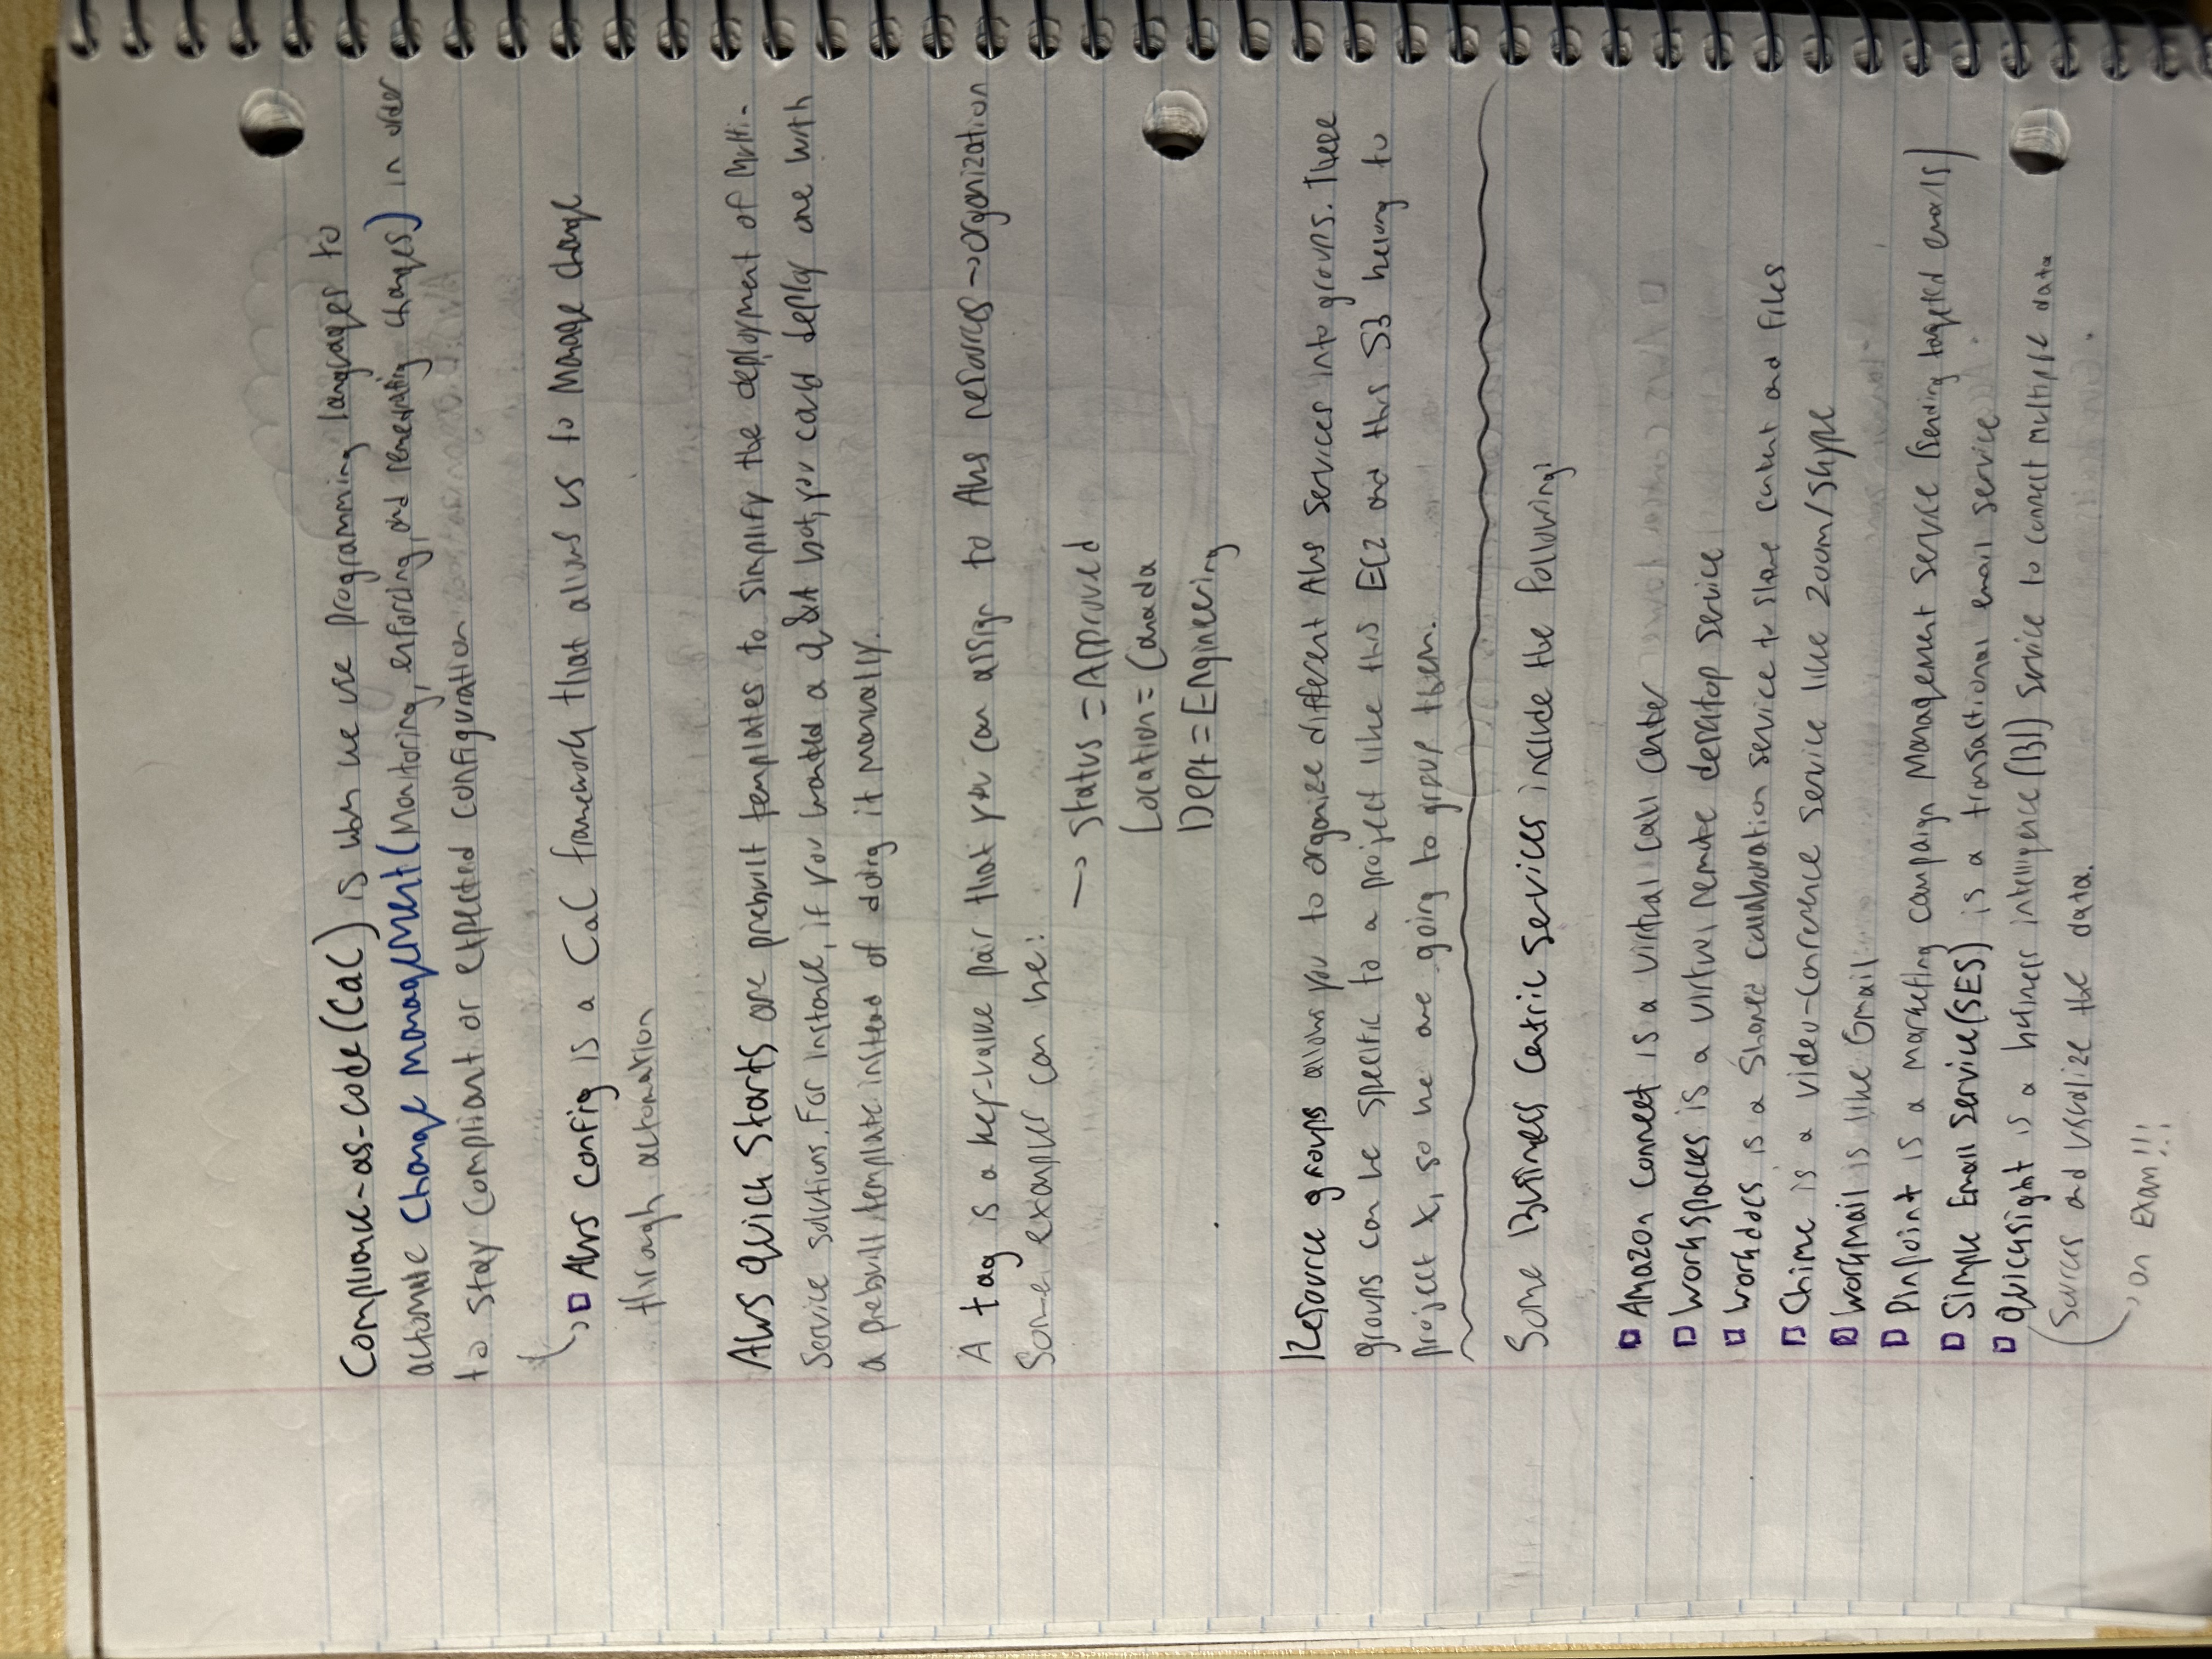 Compliance-as-code (CaC) is when we use programming languages to
automate Change Management (Monitoring, enforcing, and remediating changes) in order
to stay compliant or expected configuration
AWS Config is a CaC framework that allows us to manage change
through automation
AWS Quick Starts are prebuilt templates to simplify the deployment of Multi-
Service solutions. For instance, if you wanted a Q&A bot, you could deploy one with
a prebuilt template instead of doing it manually.
A tag is a key-value pair that you can assign to AWS resources → organization
Some examples can be:
→ Status = Approved
Location = Canada
Dept = Engineering
Resource groups allows you to organize different AWS services into groups. These
groups can be specific to a project like this EC2 and this S3 belong to
project X, so we are going to group them.
Some Business Centric Services include the following:
Amazon Connect is a virtual call center
Workspaces is a virtual remote desktop service
Workdocs is a shared collaboration service to store content and files
Chime is a video-conference service like Zoom/Skype
WorkMail is like Gmail
Pinpoint is a marketing campaign management service (sending targeted emails)
Simple Email Service (SES) is a transactional email service
Quicksight is a business intelligence (BI) service to connect multiple data
sources and visualize the data.
→ on Exam!!!